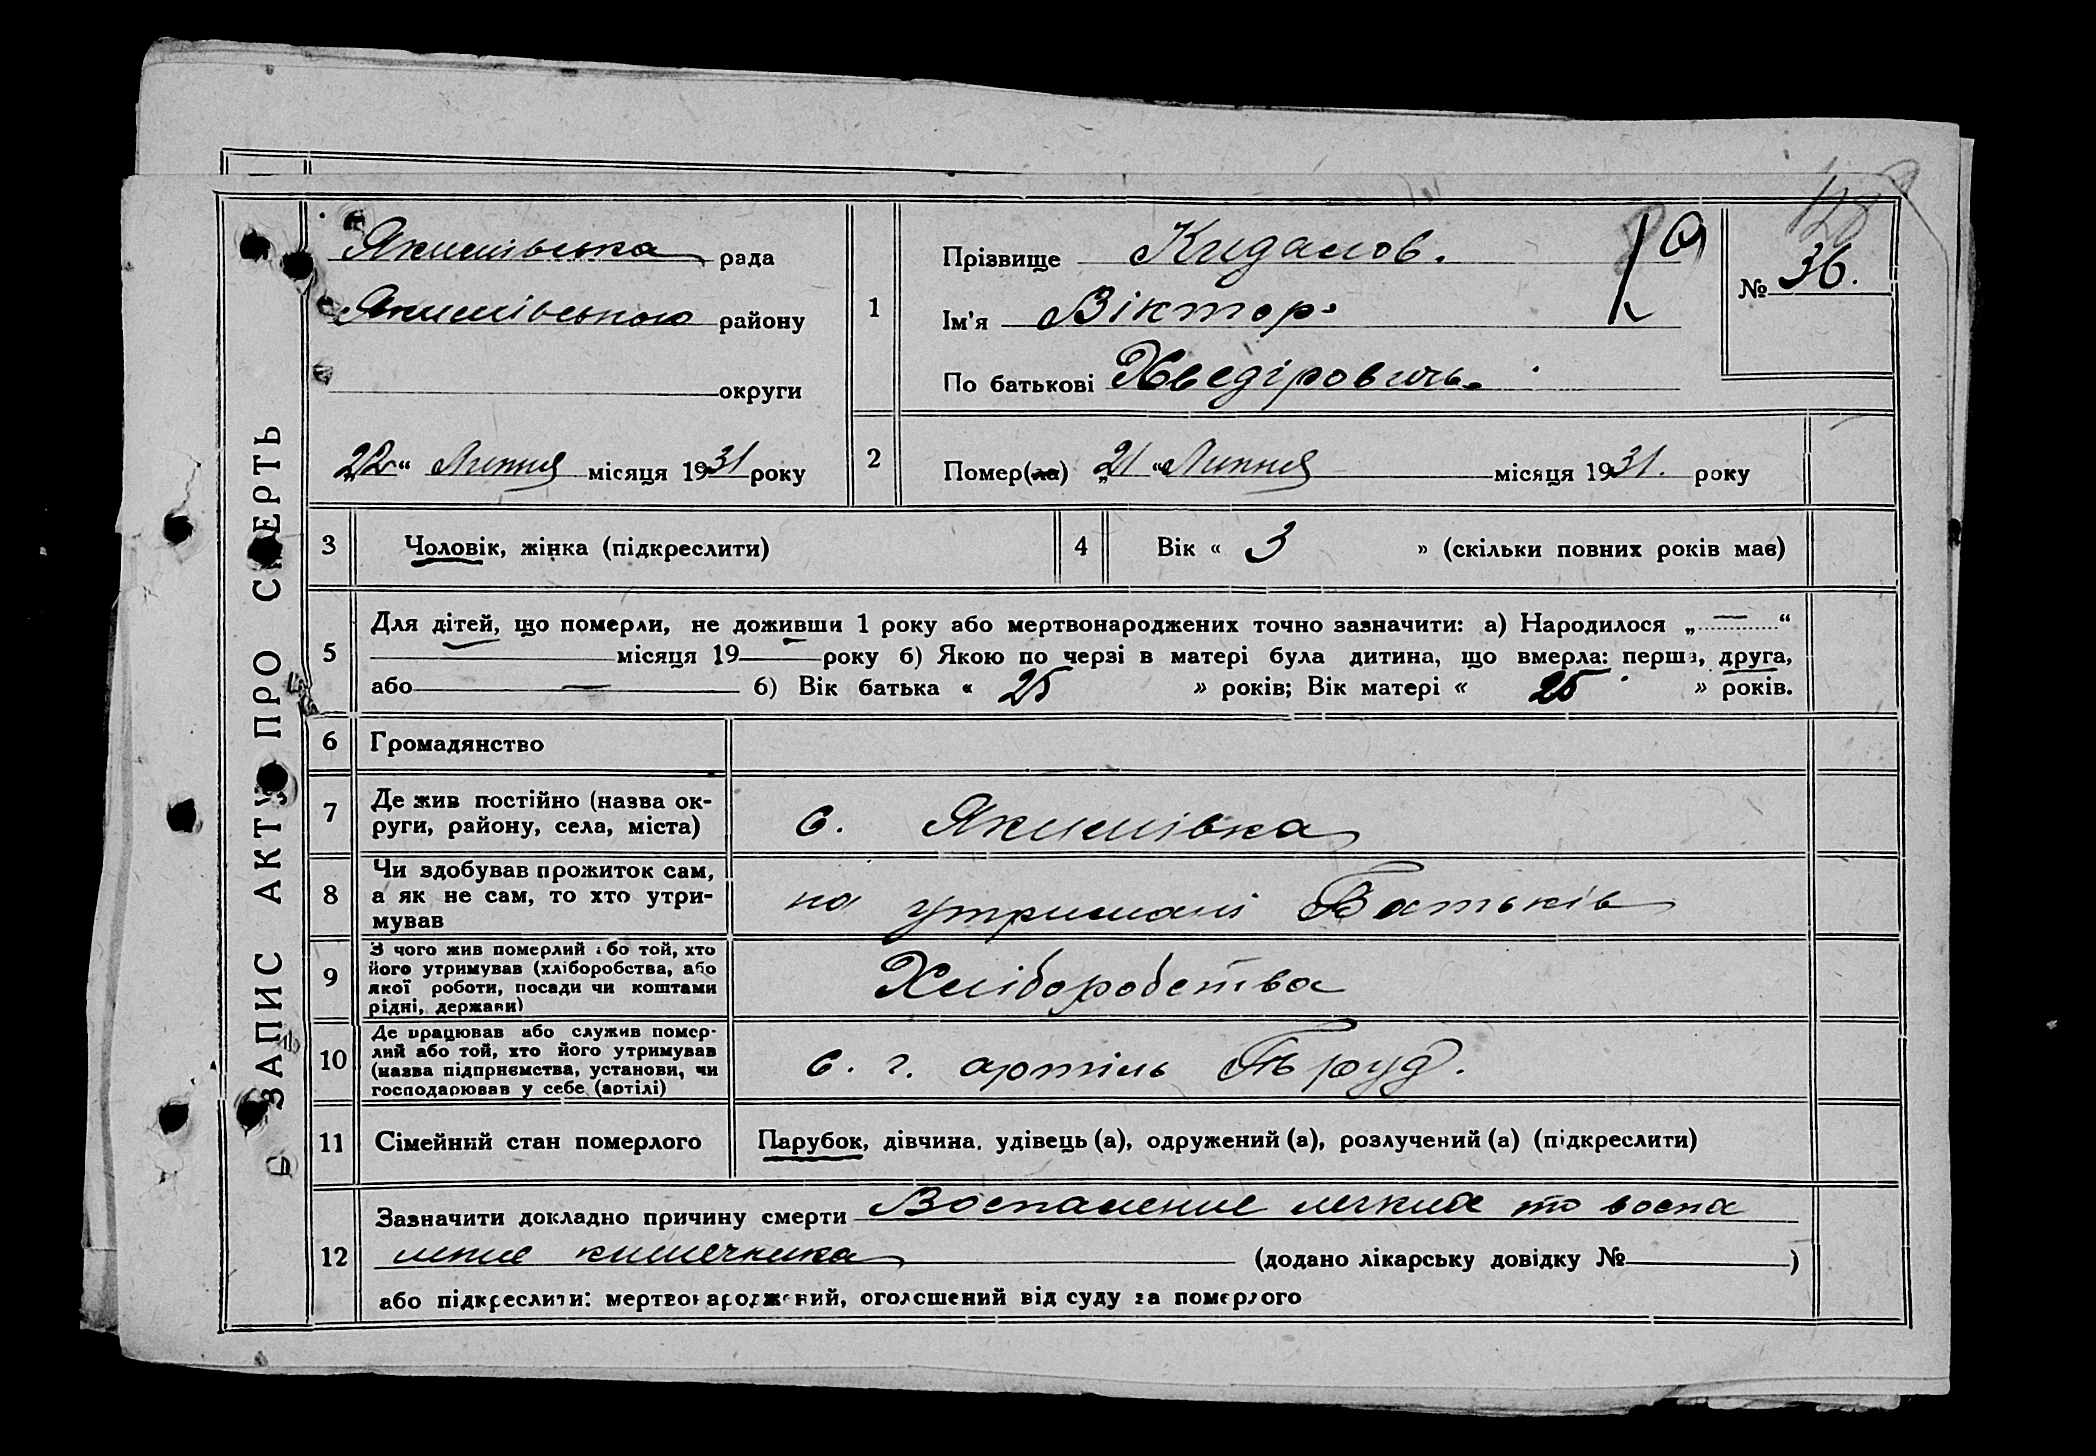 ЗАПИС АКТУ ПРО СМЕРТЬ
Якимівська рада
Якимівського району
округи
„22“ Липня місяця 1931 року
1
Прізвище Кидалов.
Ім'я Віктор
По батькові Хведірович.
№ 36.
2
Помер(ла) „21“ Липня місяця 1931. року
3
Чоловік, жінка (підкреслити)
4
Вік « 3 » (скільки повних років має)
5
Для дітей, що померли, не доживши 1 року або мертвонароджених точно зазначити: а) Народилося „ — “
місяця 19 — року б) Якою по черзі в матері була дитина, що вмерла: перша, друга,
або — б) Вік батька « 25 » років; Вік матері « 25 » років.
6
Громадянство
7
Де жив постійно (назва ок-
руги, району, села, міста)
с. Якимівка
8
Чи здобував прожиток сам,
а як не сам, то хто утри-
мував
на утримані Батьків
9
З чого жив померлий або той, хто
його утримував (хліборобства, або
якої роботи, посади чи коштами
рідні, держави)
Хліборобства
10
Де працював або служив помер-
лий або той, хто його утримував
(назва підприємства, установи, чи
господарював у себе (артілі)
с. г. артіль
11
Сімейний стан померлого
Парубок, дівчина, удівець (а), одружений (а), розлучений (а) (підкреслити)
12
Зазначити докладно причину смерти Воспаление легких воспа
ление кишечника (додано лікарську довідку № )
або підкреслити: мертвонароджений, оголошений від суду за померлого